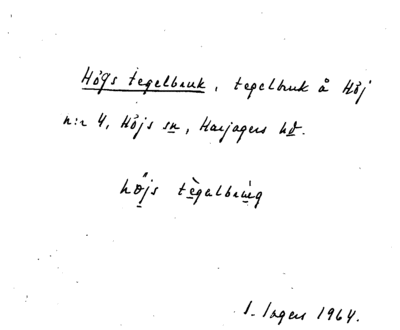 Högs tegelbruk, tegelbruk å Hög
n:r 4, Högs sn, Harjagers hd.
hö̱js tè̱galbru̱i̱g
I. Ingers 1964.